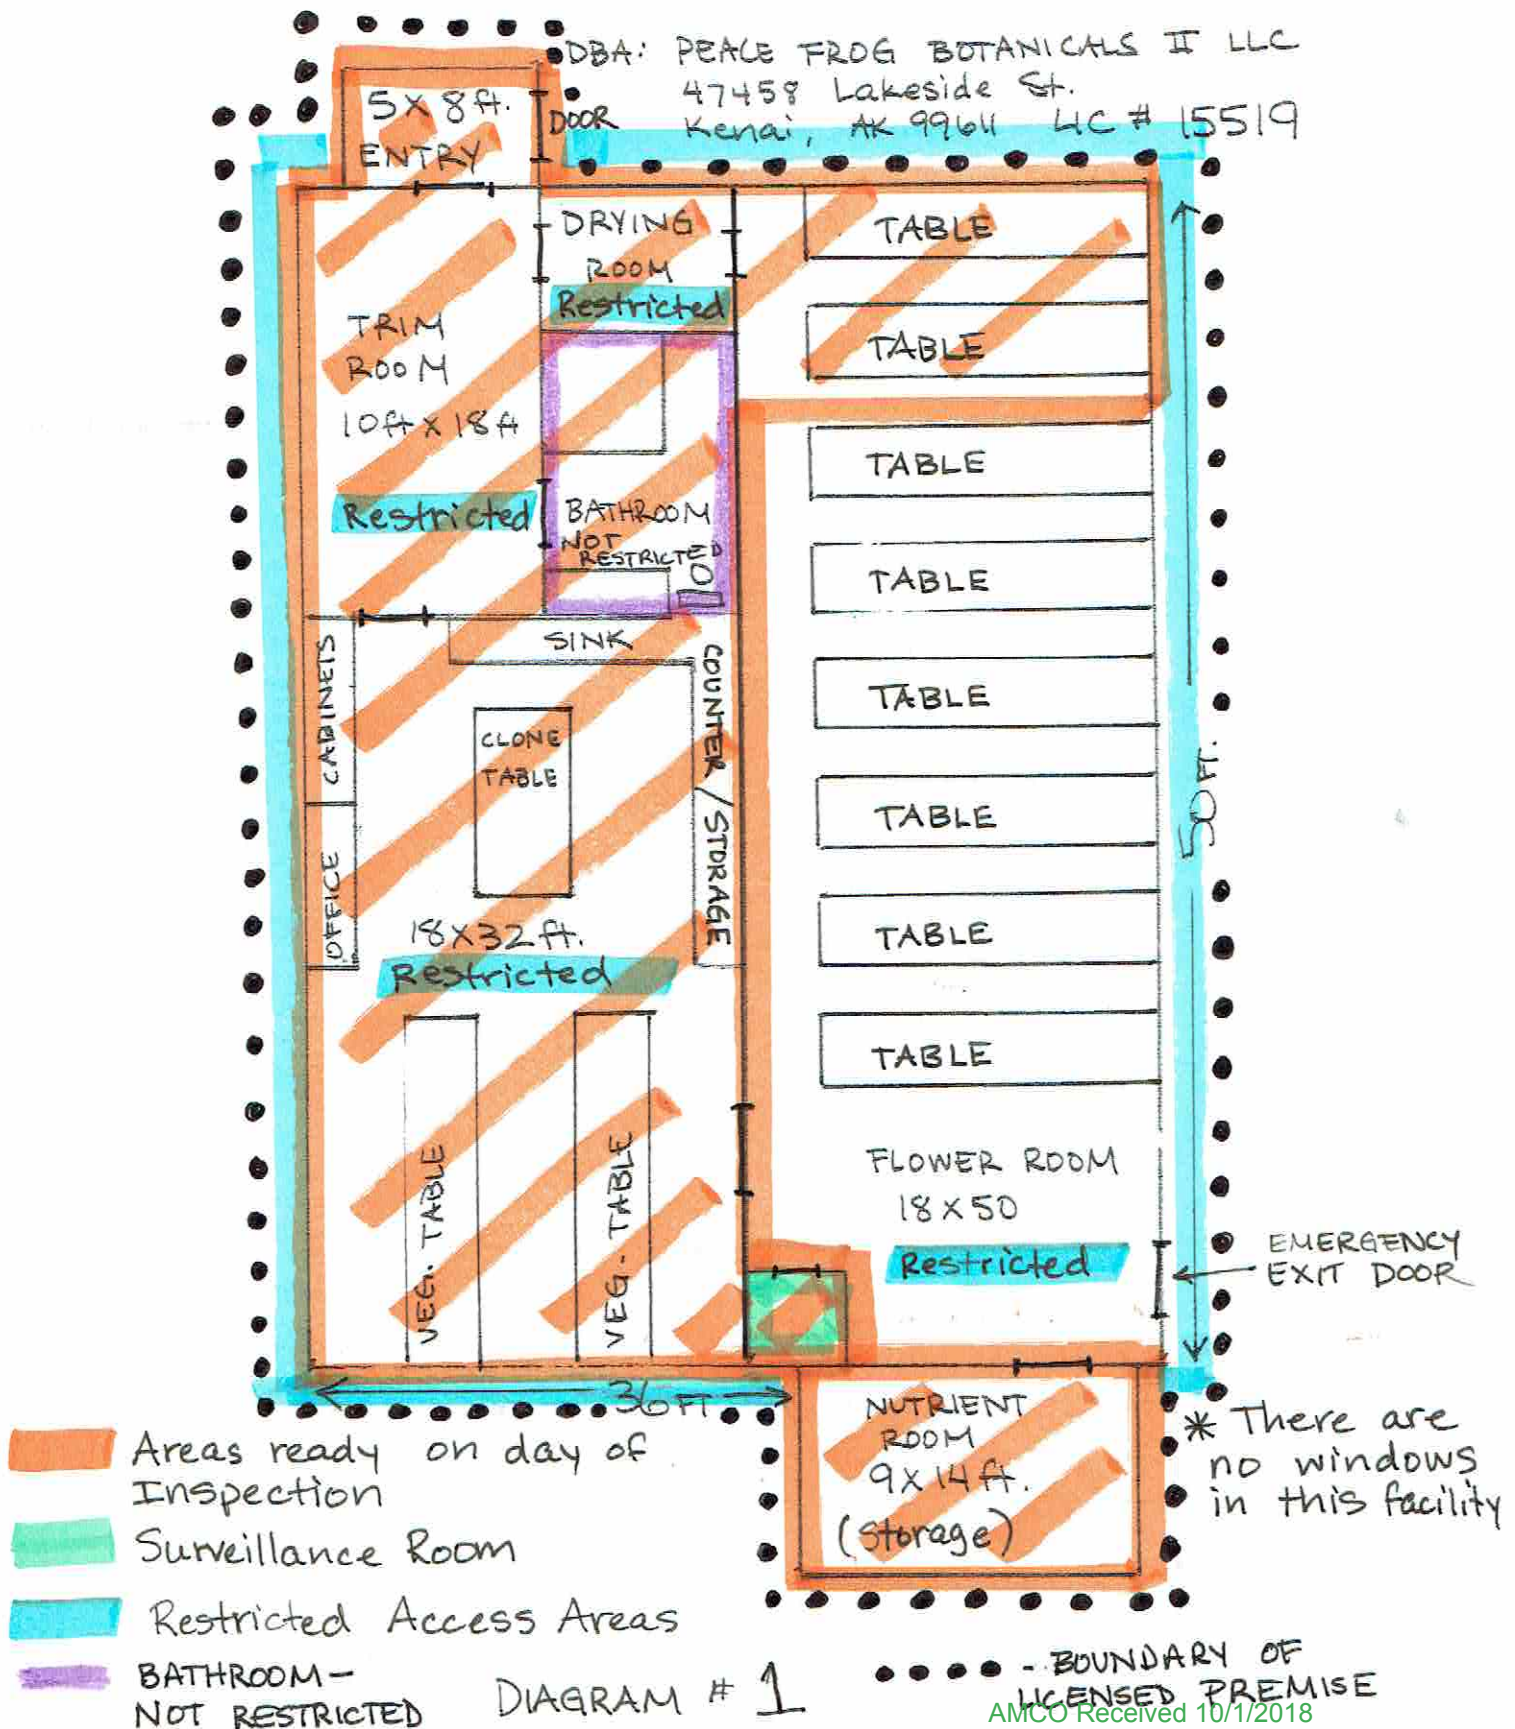 DBA: PEACE FROG BOTANICALS II LLC
47458 Lakeside St.
Kenai, AK 99611 LIC # 15519
5 X 8 ft.
ENTRY
DOOR
DRYING
ROOM
Restricted
TRIM
ROOM
10ft X 18 ft
Restricted
BATHROOM
NOT
RESTRICTED
TABLE
TABLE
TABLE
TABLE
TABLE
TABLE
TABLE
TABLE
SINK
CABINETS
OFFICE
COUNTER / STORAGE
CLONE
TABLE
18X32 ft.
Restricted
VEG. TABLE
VEG. TABLE
50 FT.
FLOWER ROOM
18 X 50
Restricted
EMERGENCY
EXIT DOOR
36 FT
NUTRIENT
ROOM
9 X 14 ft.
(Storage)
* There are
no windows
in this facility
Areas ready on day of
Inspection
Surveillance Room
Restricted Access Areas
BATHROOM-
NOT RESTRICTED
DIAGRAM # 1
- BOUNDARY OF
LICENSED PREMISE
AMCO Received 10/1/2018